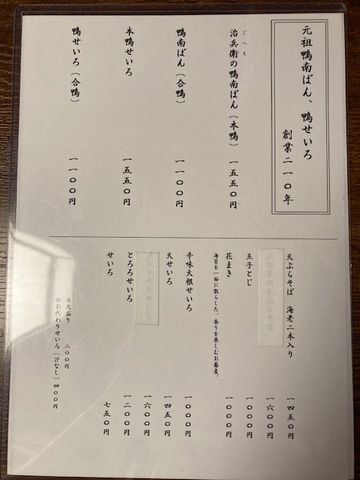 元祖鴨南ばん、鴨せいろ
創業二一〇年
じへえ
治兵衛の鴨南ばん（本鴨）　一五五〇円
鴨南ばん（合鴨）　一一〇〇円
本鴨せいろ　一五五〇円
鴨せいろ（合鴨）　一一〇〇円
天ぷらそば　海老二本入り　一四五〇円
一六〇〇円
玉子とじ　一〇〇〇円
花まき　一〇〇〇円
海苔を一面に散らした、香りを楽しむお蕎麦。
辛味大根せいろ　一〇〇〇円
天せいろ　一四五〇円
一六〇〇円
とろろせいろ　一二〇〇円
せいろ　七五〇円
○大盛り　二〇〇円
○お代わりせいろ（汁なし）四〇〇円